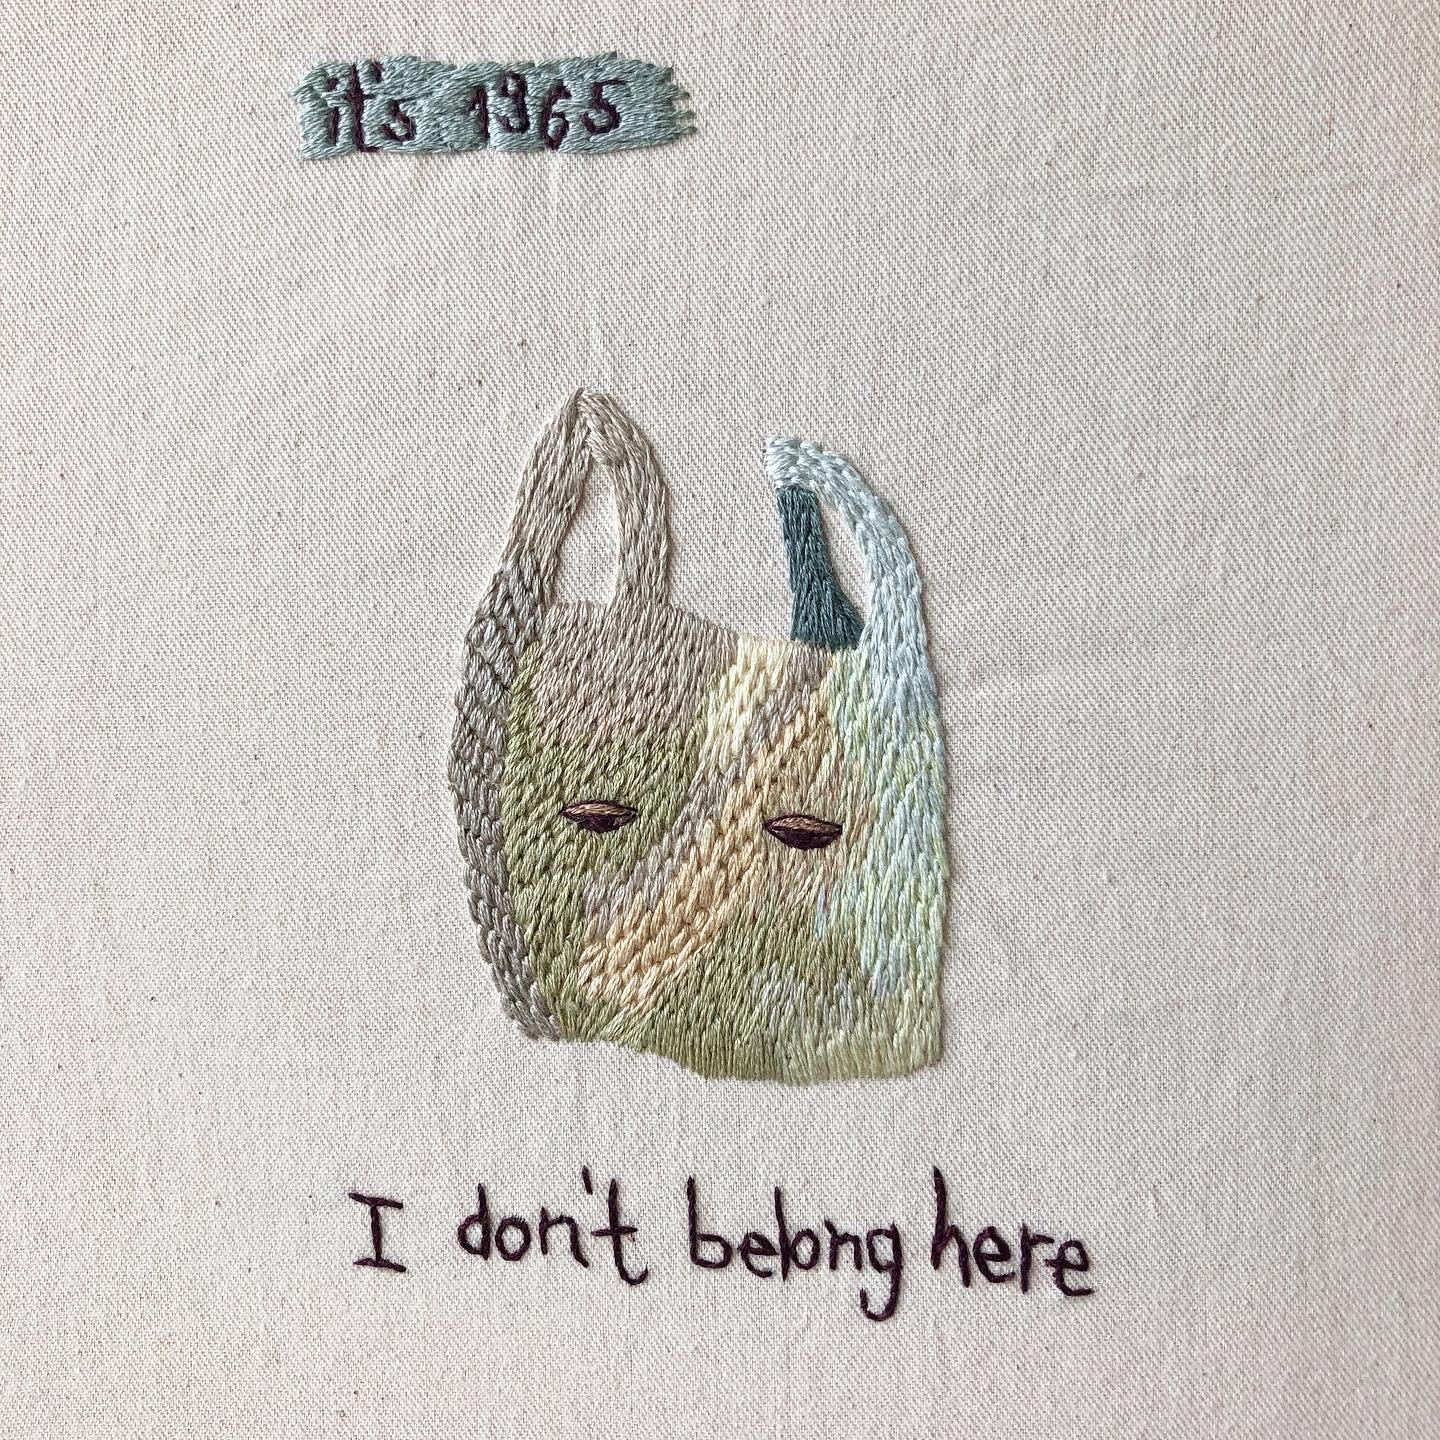 it's 1965
I don't belong here